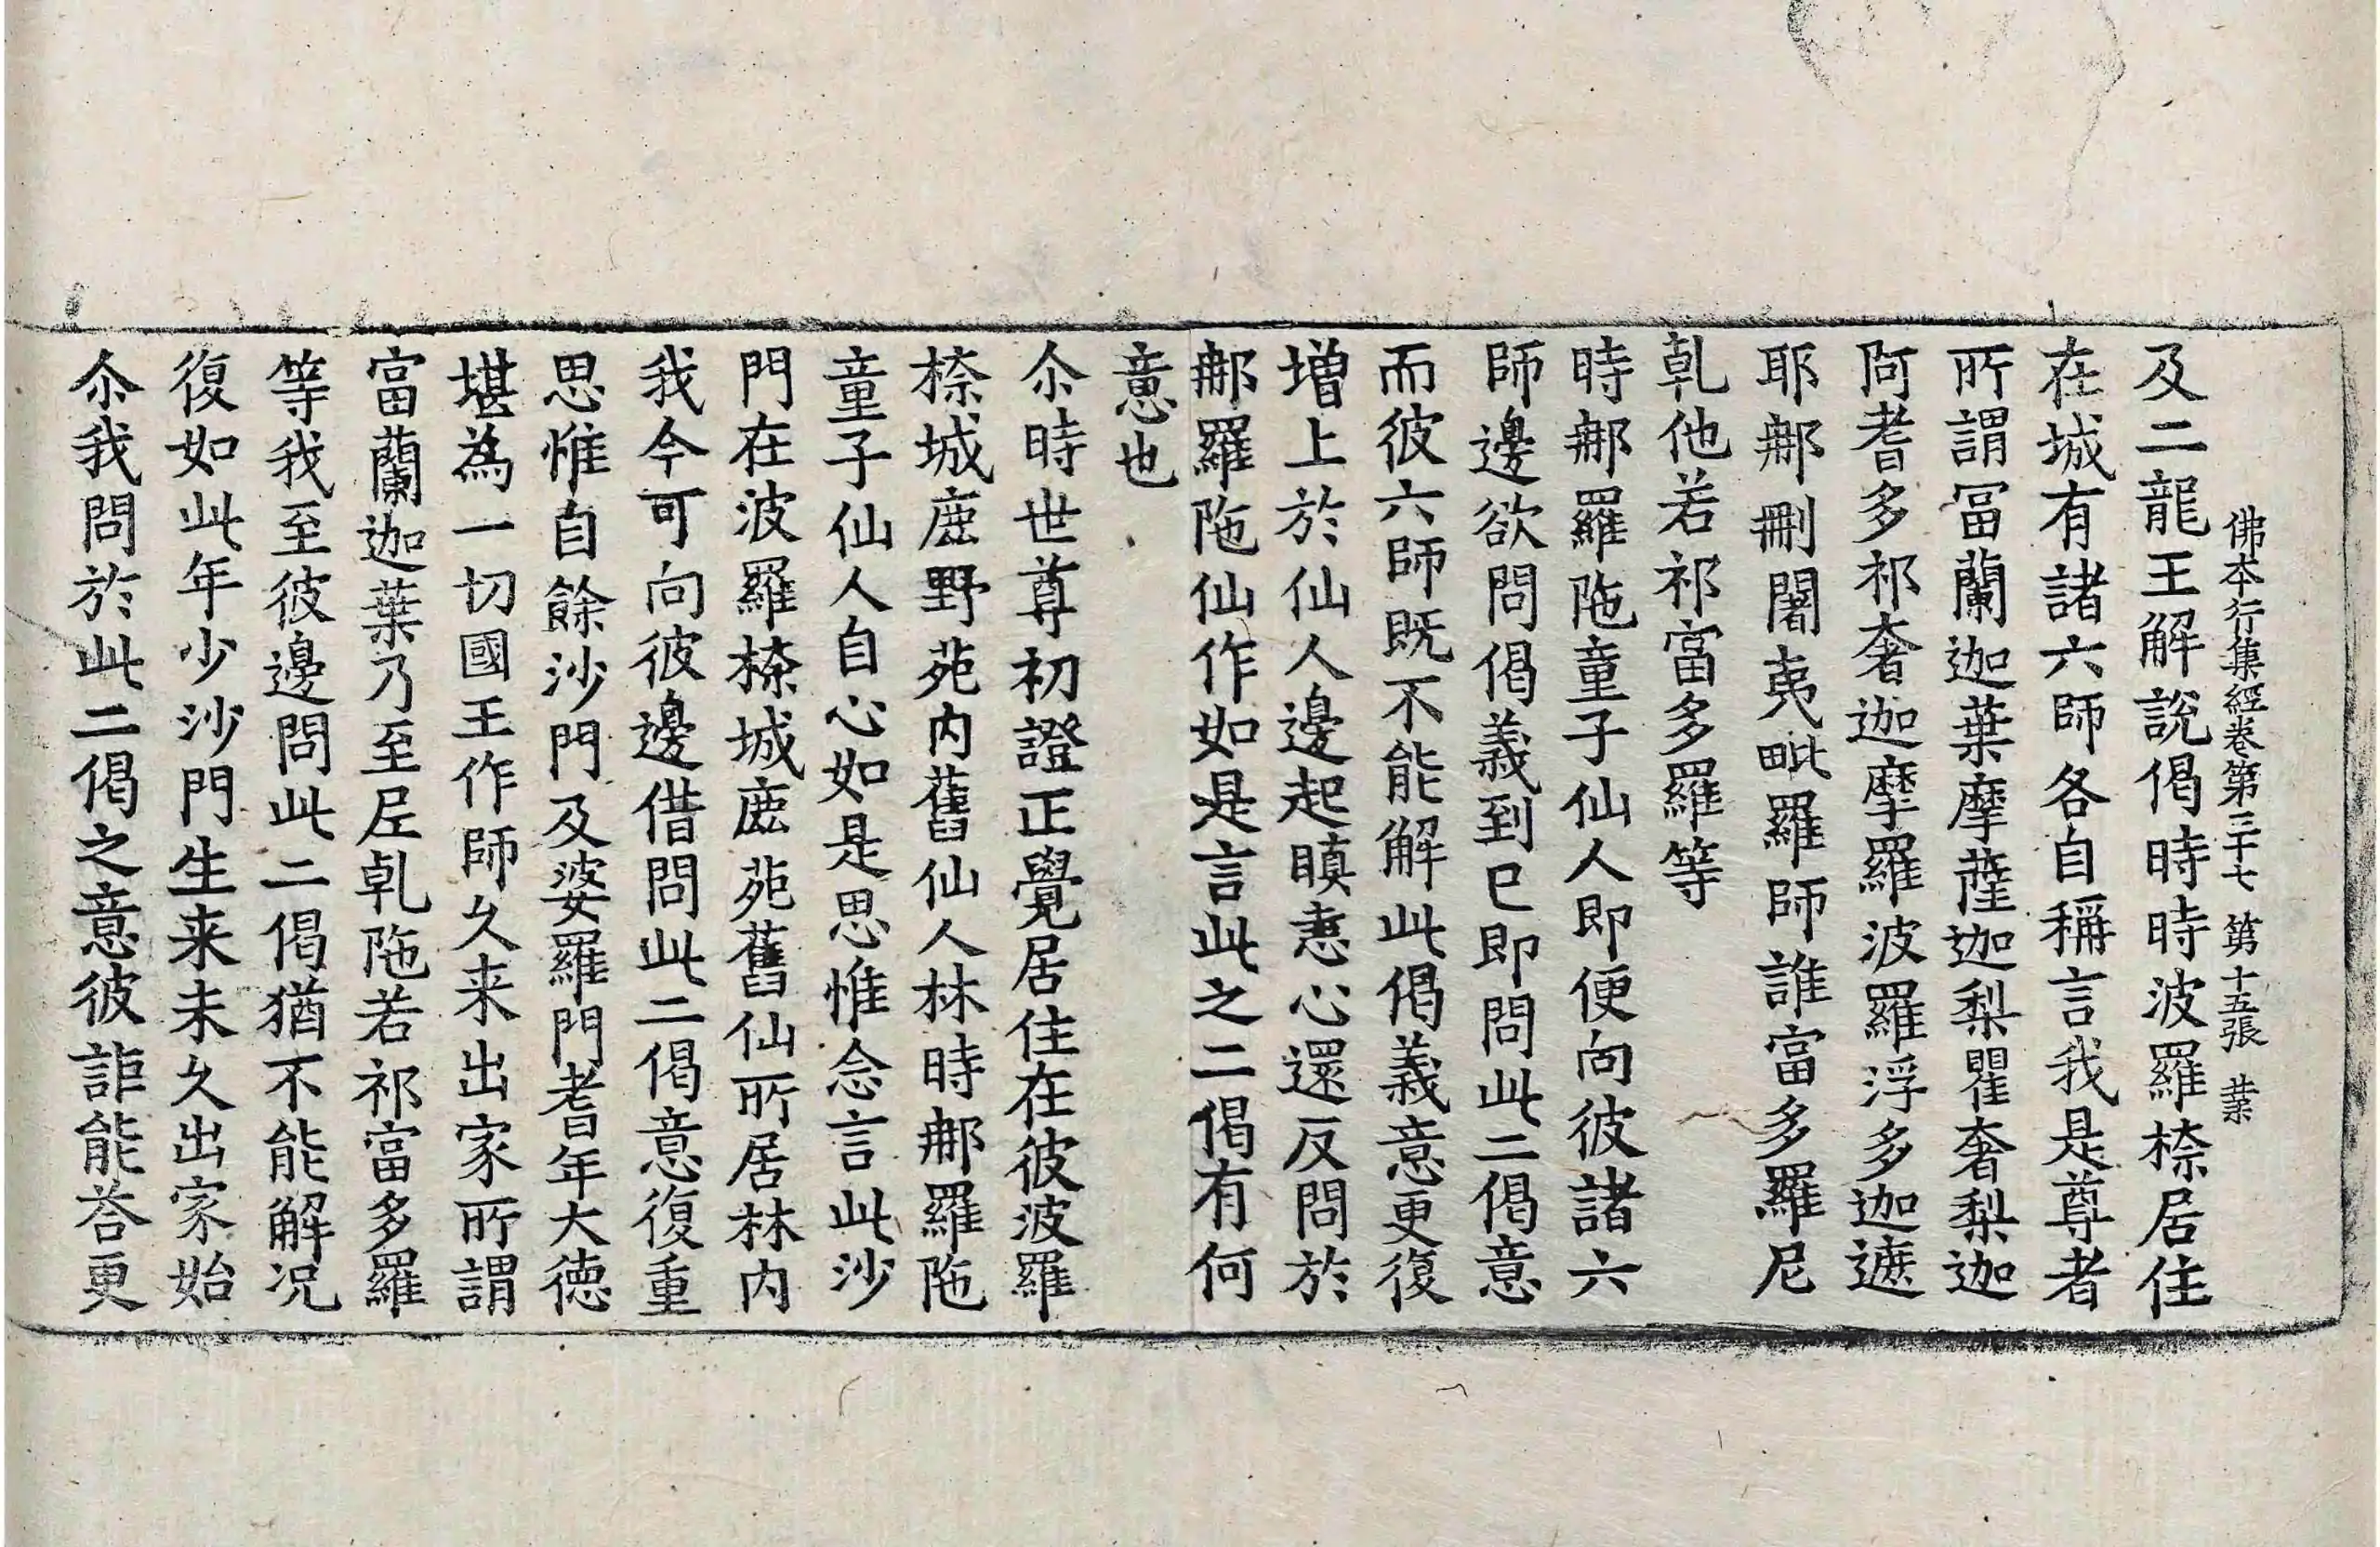 佛本行集經卷第三十七 第十五張 業
及二龍王解說偈時時波羅㮈居住
在城有諸六師各自稱言我是尊者
所謂冨蘭迦葉摩薩迦梨瞿奢梨迦
阿耆多祁奢迦摩羅波羅浮多迦遮
耶那刪闍夷毗羅師誰富多羅尼
乹他若祁富多羅等
時那羅陁童子仙人即便向彼諸六
師邊欲問偈義到已即問此二偈意
而彼六師既不能解此偈義意更復
增上於仙人邊起瞋恚心還反問於
那羅陁仙作如是言此之二偈有何
意也
尒時世尊初證正覺居住在彼波羅
㮈城鹿野苑內舊仙人林時那羅陁
童子仙人自心如是思惟念言此沙
門在波羅㮈城鹿苑舊仙所居林內
我今可向彼邊借問此二偈意復重
思惟自餘沙門及婆羅門耆年大德
堪為一切國王作師久来出家所謂
富蘭迦葉乃至𡰱乹陁若祁富多羅
等我至彼邊問此二偈猶不能解况
復如此年少沙門生来未久出家始
尒我問於此二偈之意彼詎能荅更